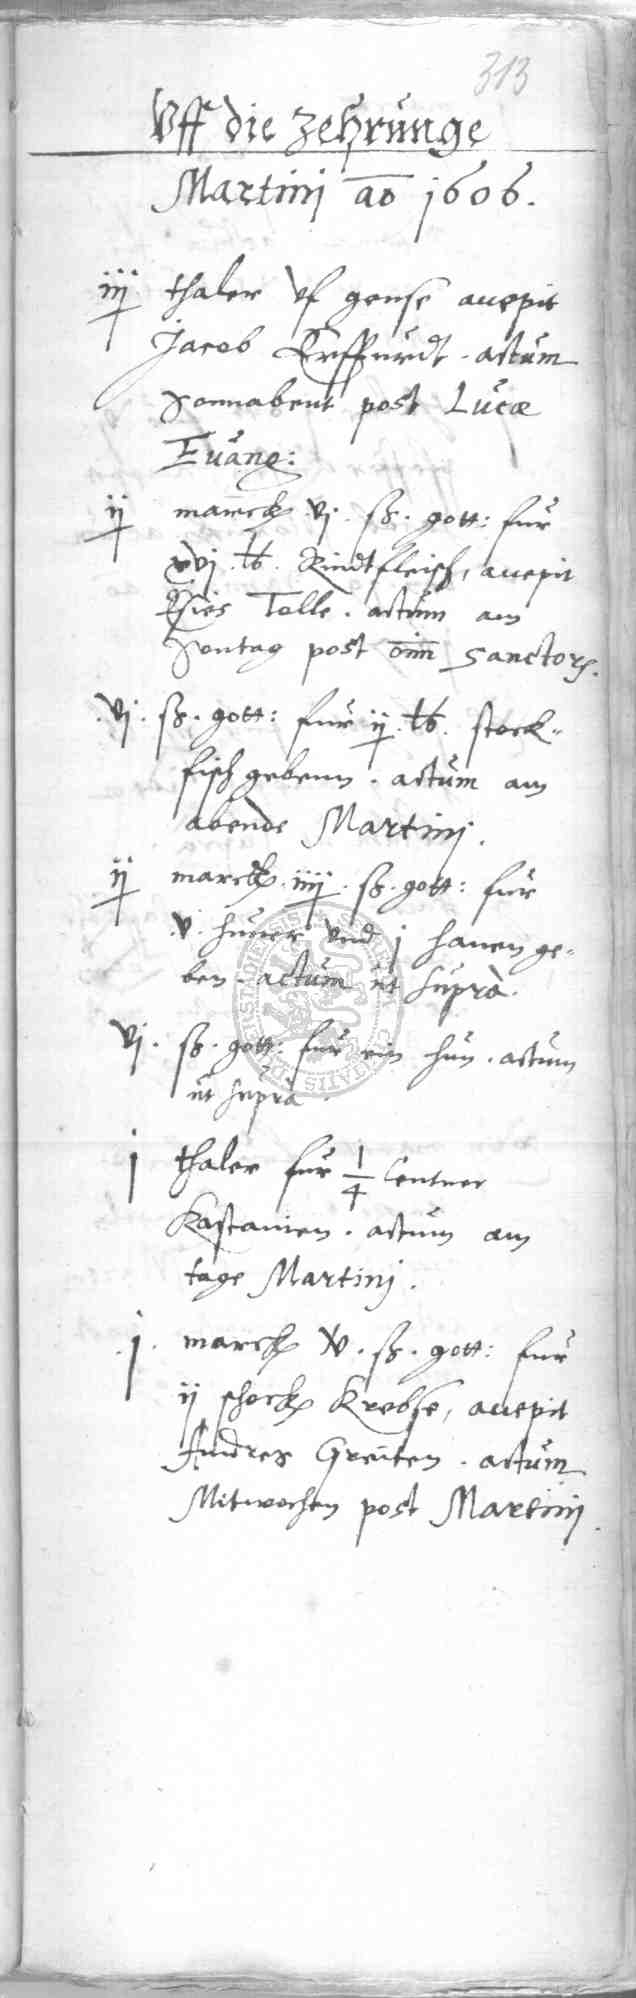 313
Vff die Zehrunge
Martinj ao 1606.
iij thaler vf gense accepit
Jacob Erffurdt . actum
Sonnabent post Lucæ
Evang:
ij marck vj . ß . gott: fur
xvj . lb . Rindtfleisch, accepit
Tolle . actum am
Sontag post oim Sanctor.
. vj . ß . gott: fur ij . lb . stock-
fisch gebenn . actum am
abende Martinj .
ij marck . iiij . ß . gott: fur
. v . huner vnd j hanen ge-
ben . actum ut supra .
vj . ß . gott: fur ein hun . actum
ut supra .
j thaler fur 1/4 Centner
Kastanien . actum am
tage Martinj .
. j . marck v . ß . gott: fur
ij schock Krebse, accepit
Andres Greuten . actum
Mitwochen post Martinj .